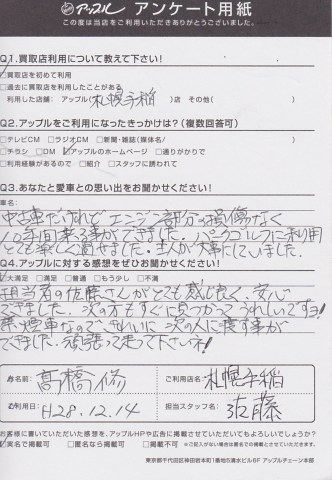 アップル アンケート用紙
この度は当店をご利用いただきありがとうございました。
Q1.買取店利用について教えて下さい!
買取店を初めて利用
□過去に買取店を利用したことがある
利用した店舗: アップル(札幌手稲)店 その他( )
Q2.アップルをご利用になったきっかけは?(複数回答可)
□テレビCM □ラジオCM □新聞・雑誌(媒体名/ )
□チラシ □DM アップルのホームページ □通りがかりで
□利用経験があるので □紹介 □スタッフに誘われて
Q3.あなたと愛車との思い出をお聞かせください!
車名:
中古車だけれどエンジン部分の損傷なく
10年間乗る事ができました。パークゴルフに利用
とても楽しく過せました。主人が大事にしていました。
Q4.アップルに対する感想をぜひお聞かせください!
大満足 □満足 □普通 □もう少し □不満
担当者の佐藤さんがとても感じ良く、安心
できました。次の方もすぐに見つかってうれしいですヨ!
禁煙車なので、きれいに次の人に渡す事が
できました。頑張って走って下さいネ!
お名前: 高橋修
ご利用店名: 札幌手稲
ご利用日: H28.12.14
担当スタッフ名: 佐藤
お客様に書いていただいた感想を、アップルHPや広告に掲載させていただいてもよろしいでしょうか?
実名で掲載可 □匿名なら掲載可 □掲載不可 ※ご記入がない場合は匿名での掲載とさせていただきます。
東京都千代田区神田岩本町1番地5清水ビル6F アップルチェーン本部